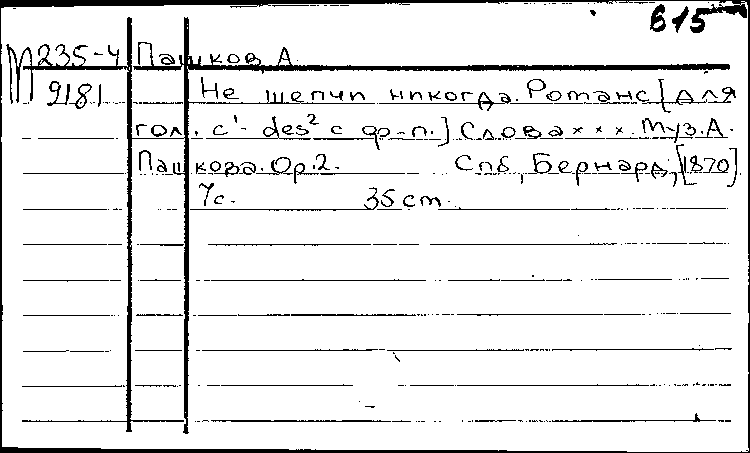 615
М 235-4 Пашков, А.
9181 Не шепчи никогда. Романс [для
гол. c¹- des² с ф-п.] Слова х х х. Муз. А.
Пашкова. Ор. 2. Спб, Бернард, [1870]
7с. 35 cm.